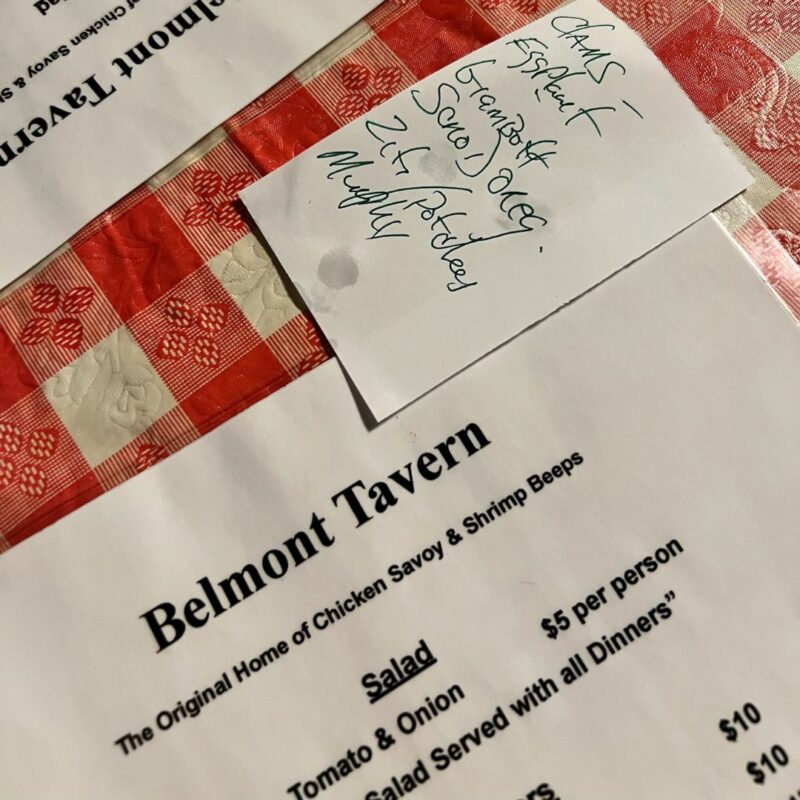 elmont Tavern
of Chicken Savoy & S
lad
CLAMS -
EggPlant
GiamBott
Zits / Potatoes
Murphy
Belmont Tavern
The Original Home of Chicken Savoy & Shrimp Beeps
Salad
$5 per person
Tomato & Onion
Salad Served with all Dinners"
$10
$10
ers